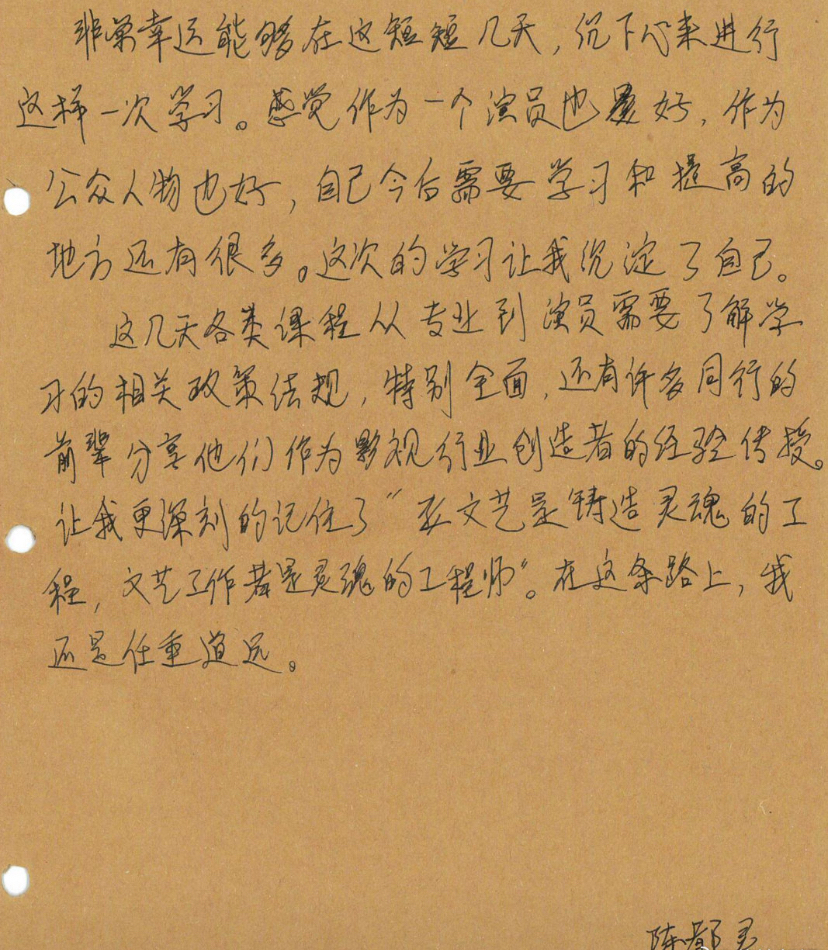 非常幸运能够在这短短几天,沉下心来进行
这样一次学习。感觉作为一个演员也好,作为
公众人物也好,自己今后需要学习和提高的
地方还有很多。这次的学习让我沉淀了自己。
这几天各类课程从专业到演员需要了解学
习的相关政策法规,特别全面,还有许多同行的
前辈分享他们作为影视行业创造者的经验传授。
让我更深刻的记住了“文艺是铸造灵魂的工
程,文艺工作者是灵魂的工程师”。在这条路上,我
还是任重道远。
陈都灵